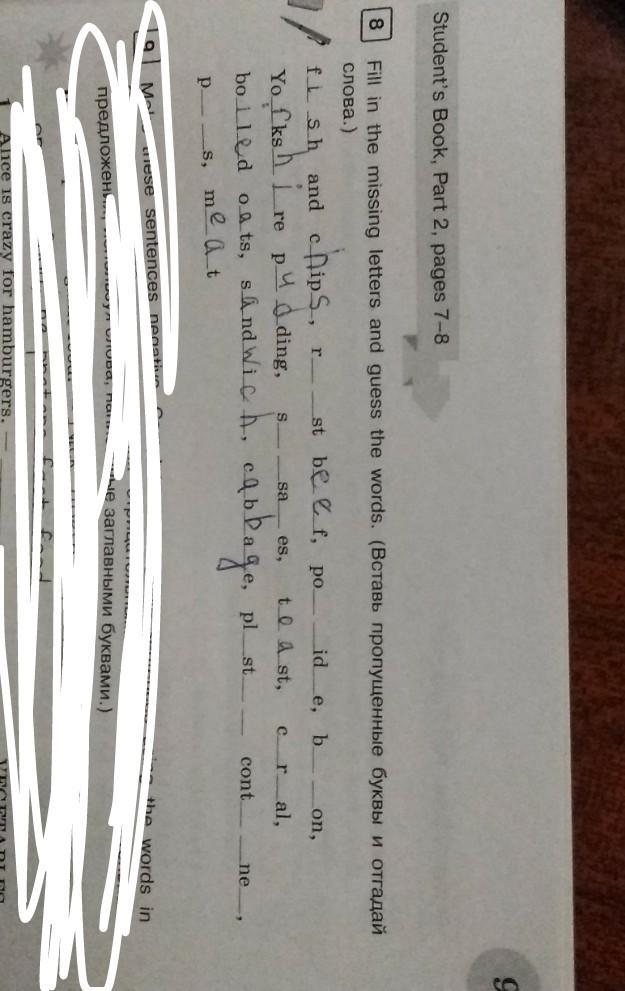 Student's Book, Part 2, pages 7–8
8 Fill in the missing letters and guess the words. (Вставь пропущенные буквы и отгадай
слова.)
fish and chips, r__ __st beef, po__ __id__e, b__ __on,
Yofkshire pudding, s__ __sa__es, teast, c__r__al,
boiled oats, sandwich, cabbage, pl__st__ __ cont__ __ne__,
p__ __s, meat
9 these sentences negative. the words in
предложения, слова, заглавными буквами.)
fast food
1 Alice is crazy for hamburgers. —
VEGETABLES